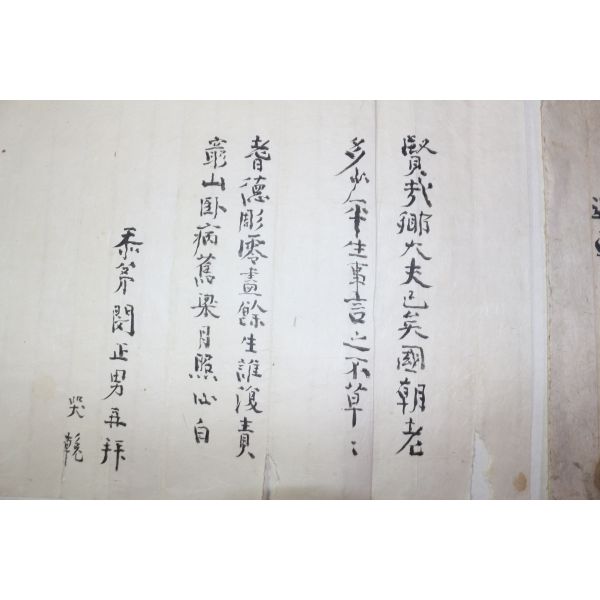 賢哉鄉大夫已矣國朝老
多少平生事言之不草〻
耆德彫零盡餘生誰復責
窮山臥病舊梁月照心自
忝弟閔正男再拜
哭輓